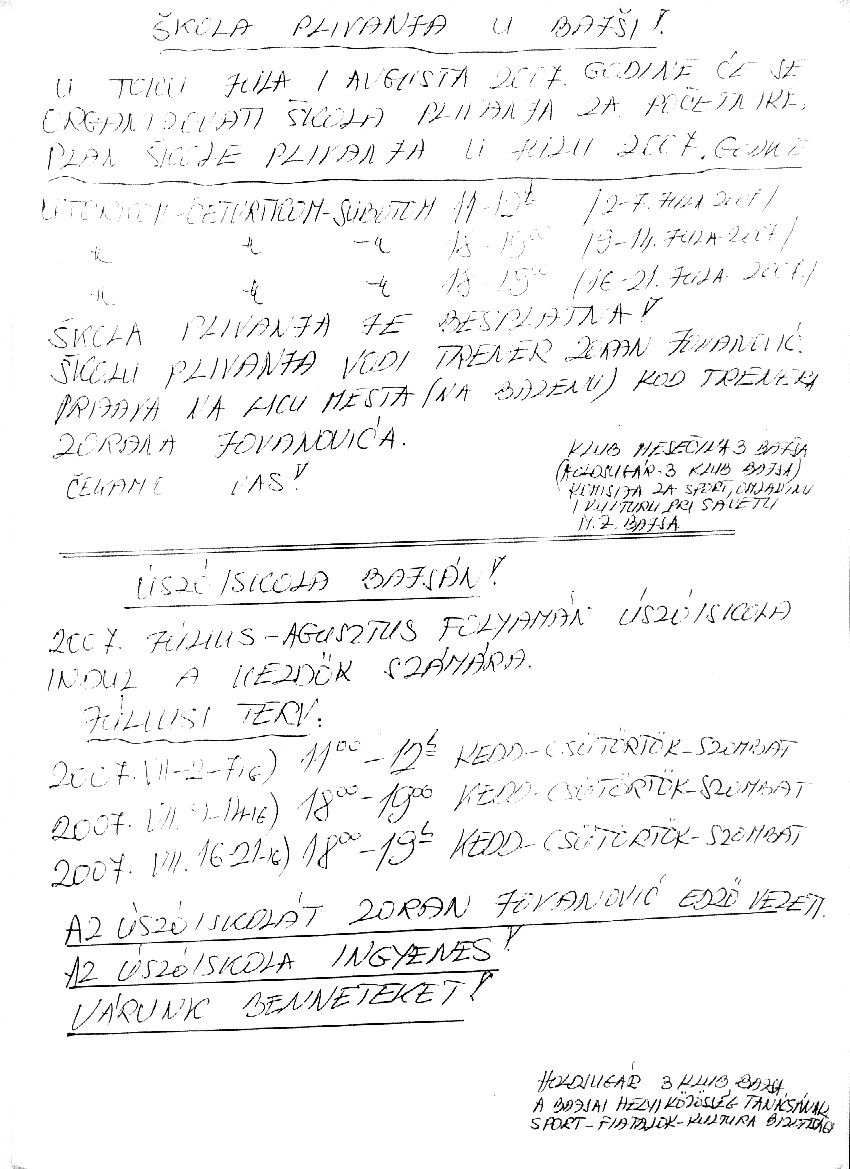 ŠKOLA PLIVANJA U BAJŠI!
U TOKU JULA I AVGUSTA 2007. GODINE ĆE SE
ORGANIZOVATI ŠKOLA PLIVANJA ZA POČETNIKE.
PLAN ŠKOLE PLIVANJA U JULU 2007. GODINE
UTORKOM-ČETVRTKOM-SUBOTOM 11-12h /2-7. JULA 2007/
-"- -"- -"- 18-1900 /9-14. JULA 2007/
-"- -"- -"- 18-1900 /16-21. JULA 2007./
ŠKOLA PLIVANJA JE BESPLATNA!
ŠKOLU PLIVANJA VODI TRENER ZORAN JOVANOVIĆ.
PRIJAVA NA LICU MESTA (NA BAZENU) KOD TRENERA
ZORANA JOVANOVIĆA.
ČEKAMO VAS!
KLUB MESEČINA 3 BAJŠA
(HOLDSUGÁR-3 KLUB BAJSA)
KOMISIJA ZA SPORT, OMLADINU
I KULTURU PRI SAVETU
M.Z. BAJŠA
ÚSZÓISKOLA BAJSÁN!
2007. JÚLIUS-AGUSZTUS FOLYAMÁN ÚSZÓISKOLA
INDUL A KEZDŐK SZÁMÁRA.
JÚLIUSI TERV:
2007. VII-2-7ig) 1100-12h KEDD-CSÜTÖRTÖK-SZOMBAT
2007. VII. 9-14ig) 1800-1900 KEDD-CSÜTÖRTÖK-SZOMBAT
2007. VII. 16-21ig) 1800-19h KEDD-CSÜTÖRTÖK-SZOMBAT
AZ ÚSZÓISKOLÁT ZORAN JOVANOVIĆ EDZŐ VEZETI.
AZ ÚSZÓISKOLA INGYENES!
VÁRUNK BENNETEKET!
HOLDSUGÁR 3 KLUB BAJSA
A BAJSAI HELYI KÖZÖSSÉG TANÁCSÁNAK
SPORT-FIATALOK-KULTURA BIZOTTSÁG